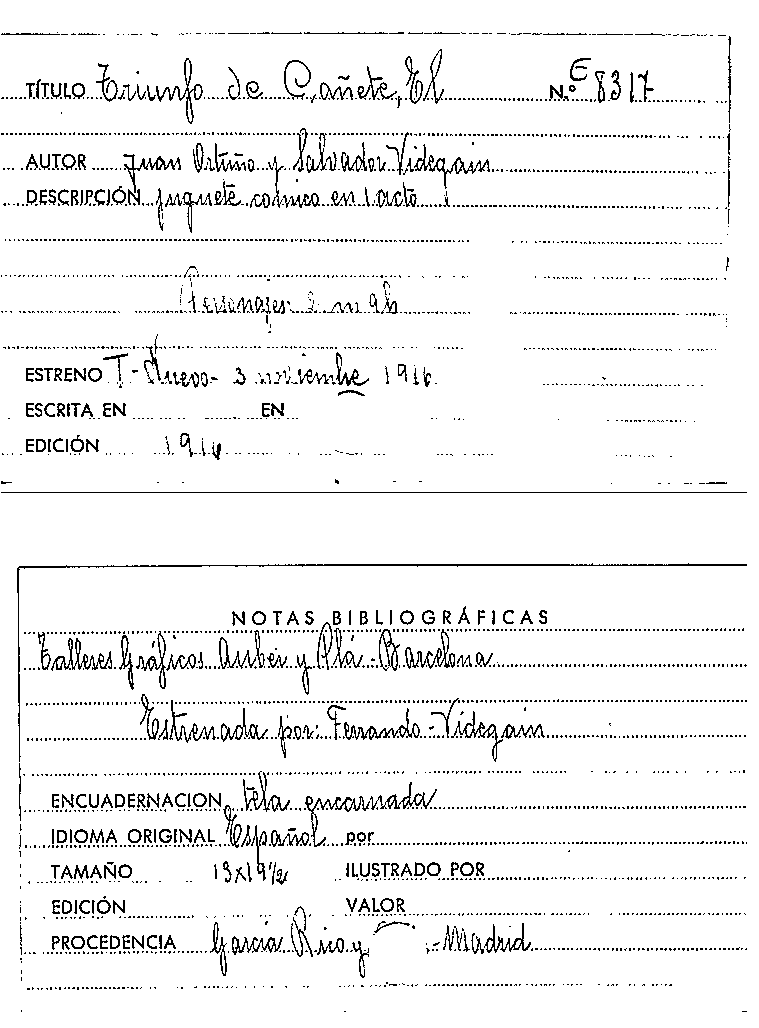 TÍTULO Triunfo de Cañete, El N.º E 8317
AUTOR Juan Ortuño y Salvador Videgain
DESCRIPCIÓN juguete cómico en 1 acto
Personajes
ESTRENO T- Nuevo- 3 noviembre 1916
ESCRITA EN EN
EDICIÓN 1916
NOTAS BIBLIOGRÁFICAS
Talleres Gráficos Auber y Plá - Barcelona
Estrenada por: Ferrando - Videgain
ENCUADERNACION tela encarnada
IDIOMA ORIGINAL Español por
TAMAÑO 13x19½ ILUSTRADO POR
EDICIÓN VALOR
PROCEDENCIA García Rico y - Madrid